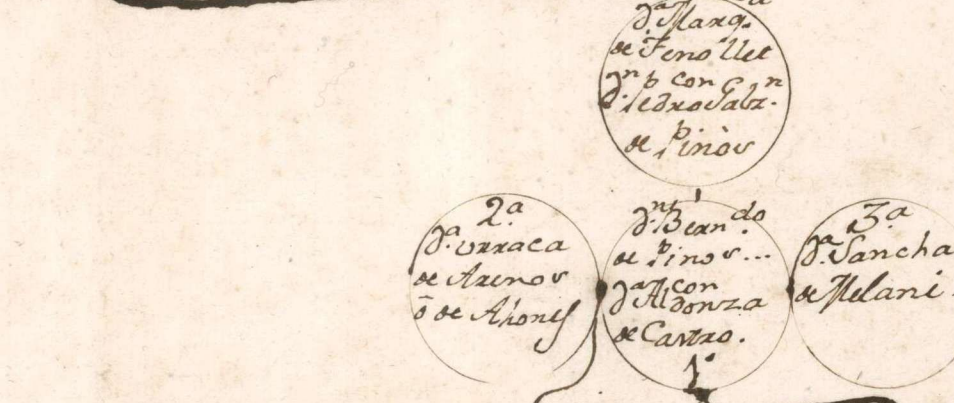 d.ª Marg.ª
de Fenollet
con
d.n Pedro Galz.n
de Pinòs
2.ª
d.ª Urraca
de Arenos
ō de Ahones
d.n Bern.do
de Pinos...
con
d.ª Aldonza
de Castro.
1.º
3.ª
d.ª Sancha
de Melani